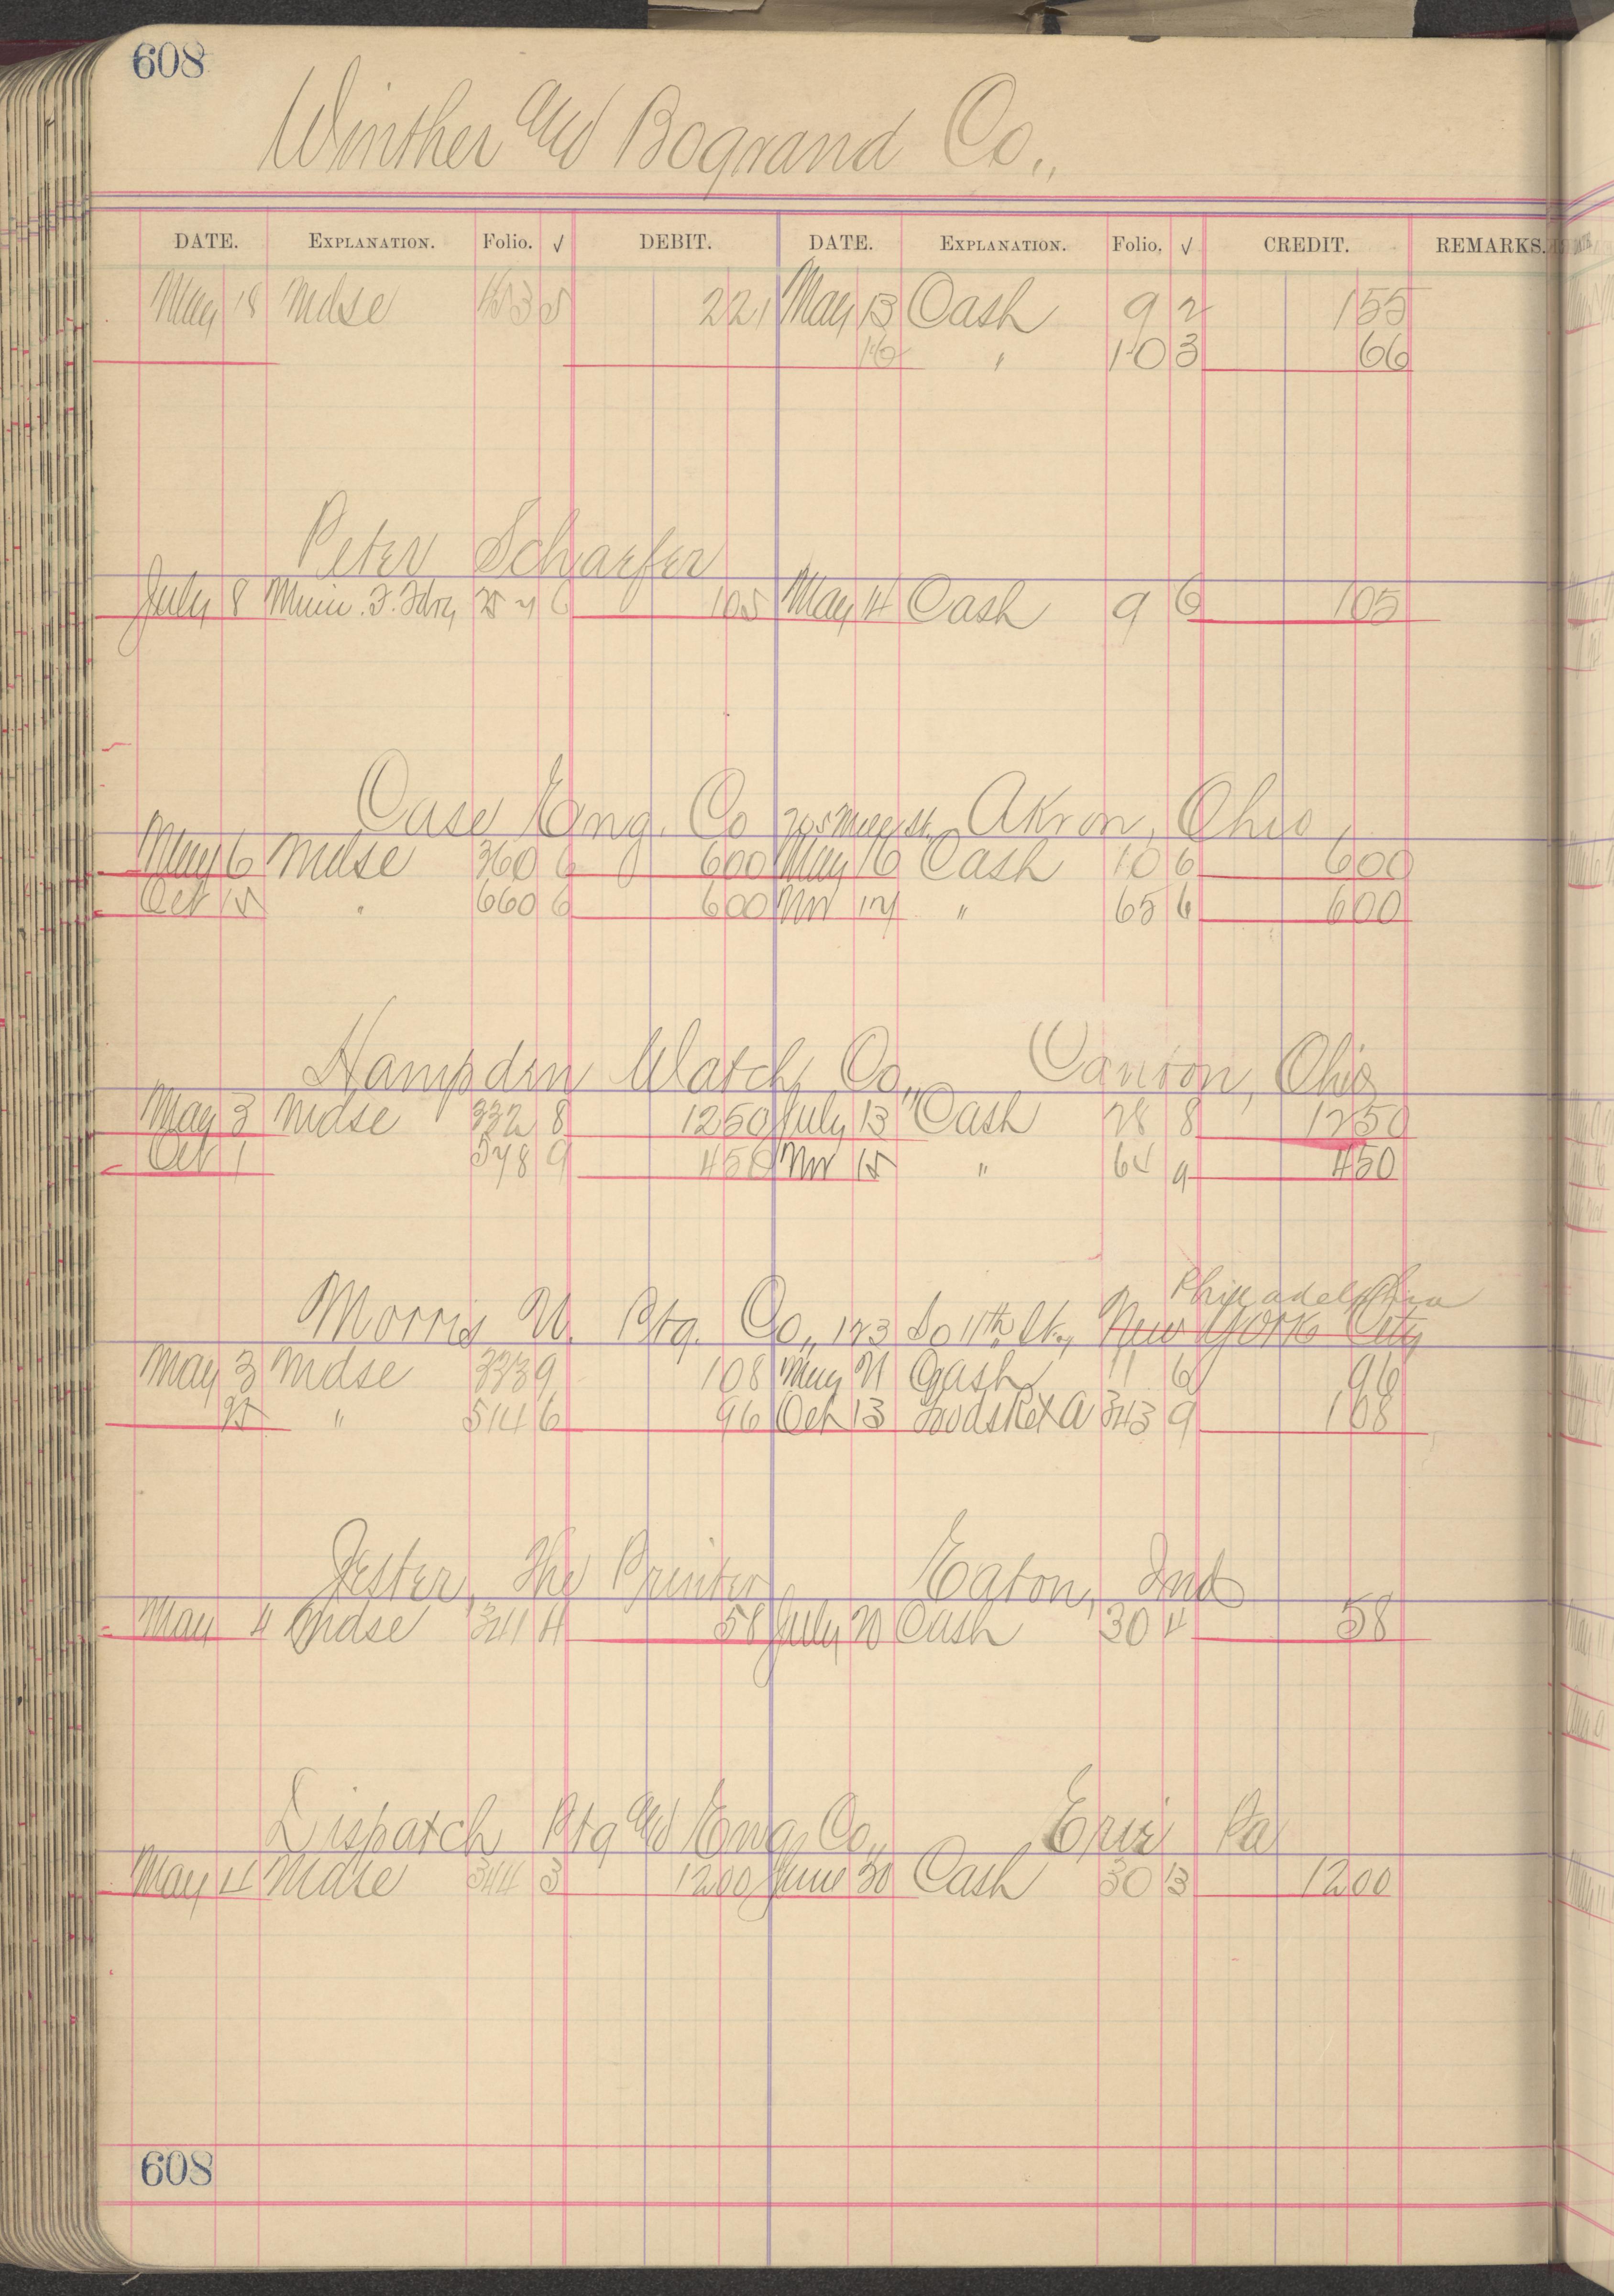 608
Winther and Bogrand Co.,
DATE. EXPLANATION. Folio. √ DEBIT. DATE. EXPLANATION. Folio. √ CREDIT. REMARKS.
May 18 Mdse 221 May 13 Cash 9 2 155
16 " 10 3 66
Peter Schaefer
July 8 105 May 14 Cash 9 6 105
Case Eng. Co Akron, Ohio,
May 6 Mdse 360 6 600 May 16 Cash 10 6 600
Oct 15 " 660 6 600 Nov 14 " 65 6 600
Hampden Watch Co., Canton, Ohio
May 3 Mdse 332 8 1250 July 13 Cash 28 8 1250
Oct 1 578 9 450 Nov 15 " 65 9 450
Philadelphia
Morris U. Ptg. Co., 123 So 11th St., New York City
May 3 Mdse 333 9 108 May 21 Cash 11 6 96
25 " 514 6 96 Oct 13 343 9 108
Jester, The Printer Eaton, Ind
May 4 Mdse 341 4 58 July 20 Cash 30 4 58
Dispatch Ptg and Eng Co., Erie Pa
May 4 Mdse 344 3 1200 June 30 Cash 30 13 1200
608